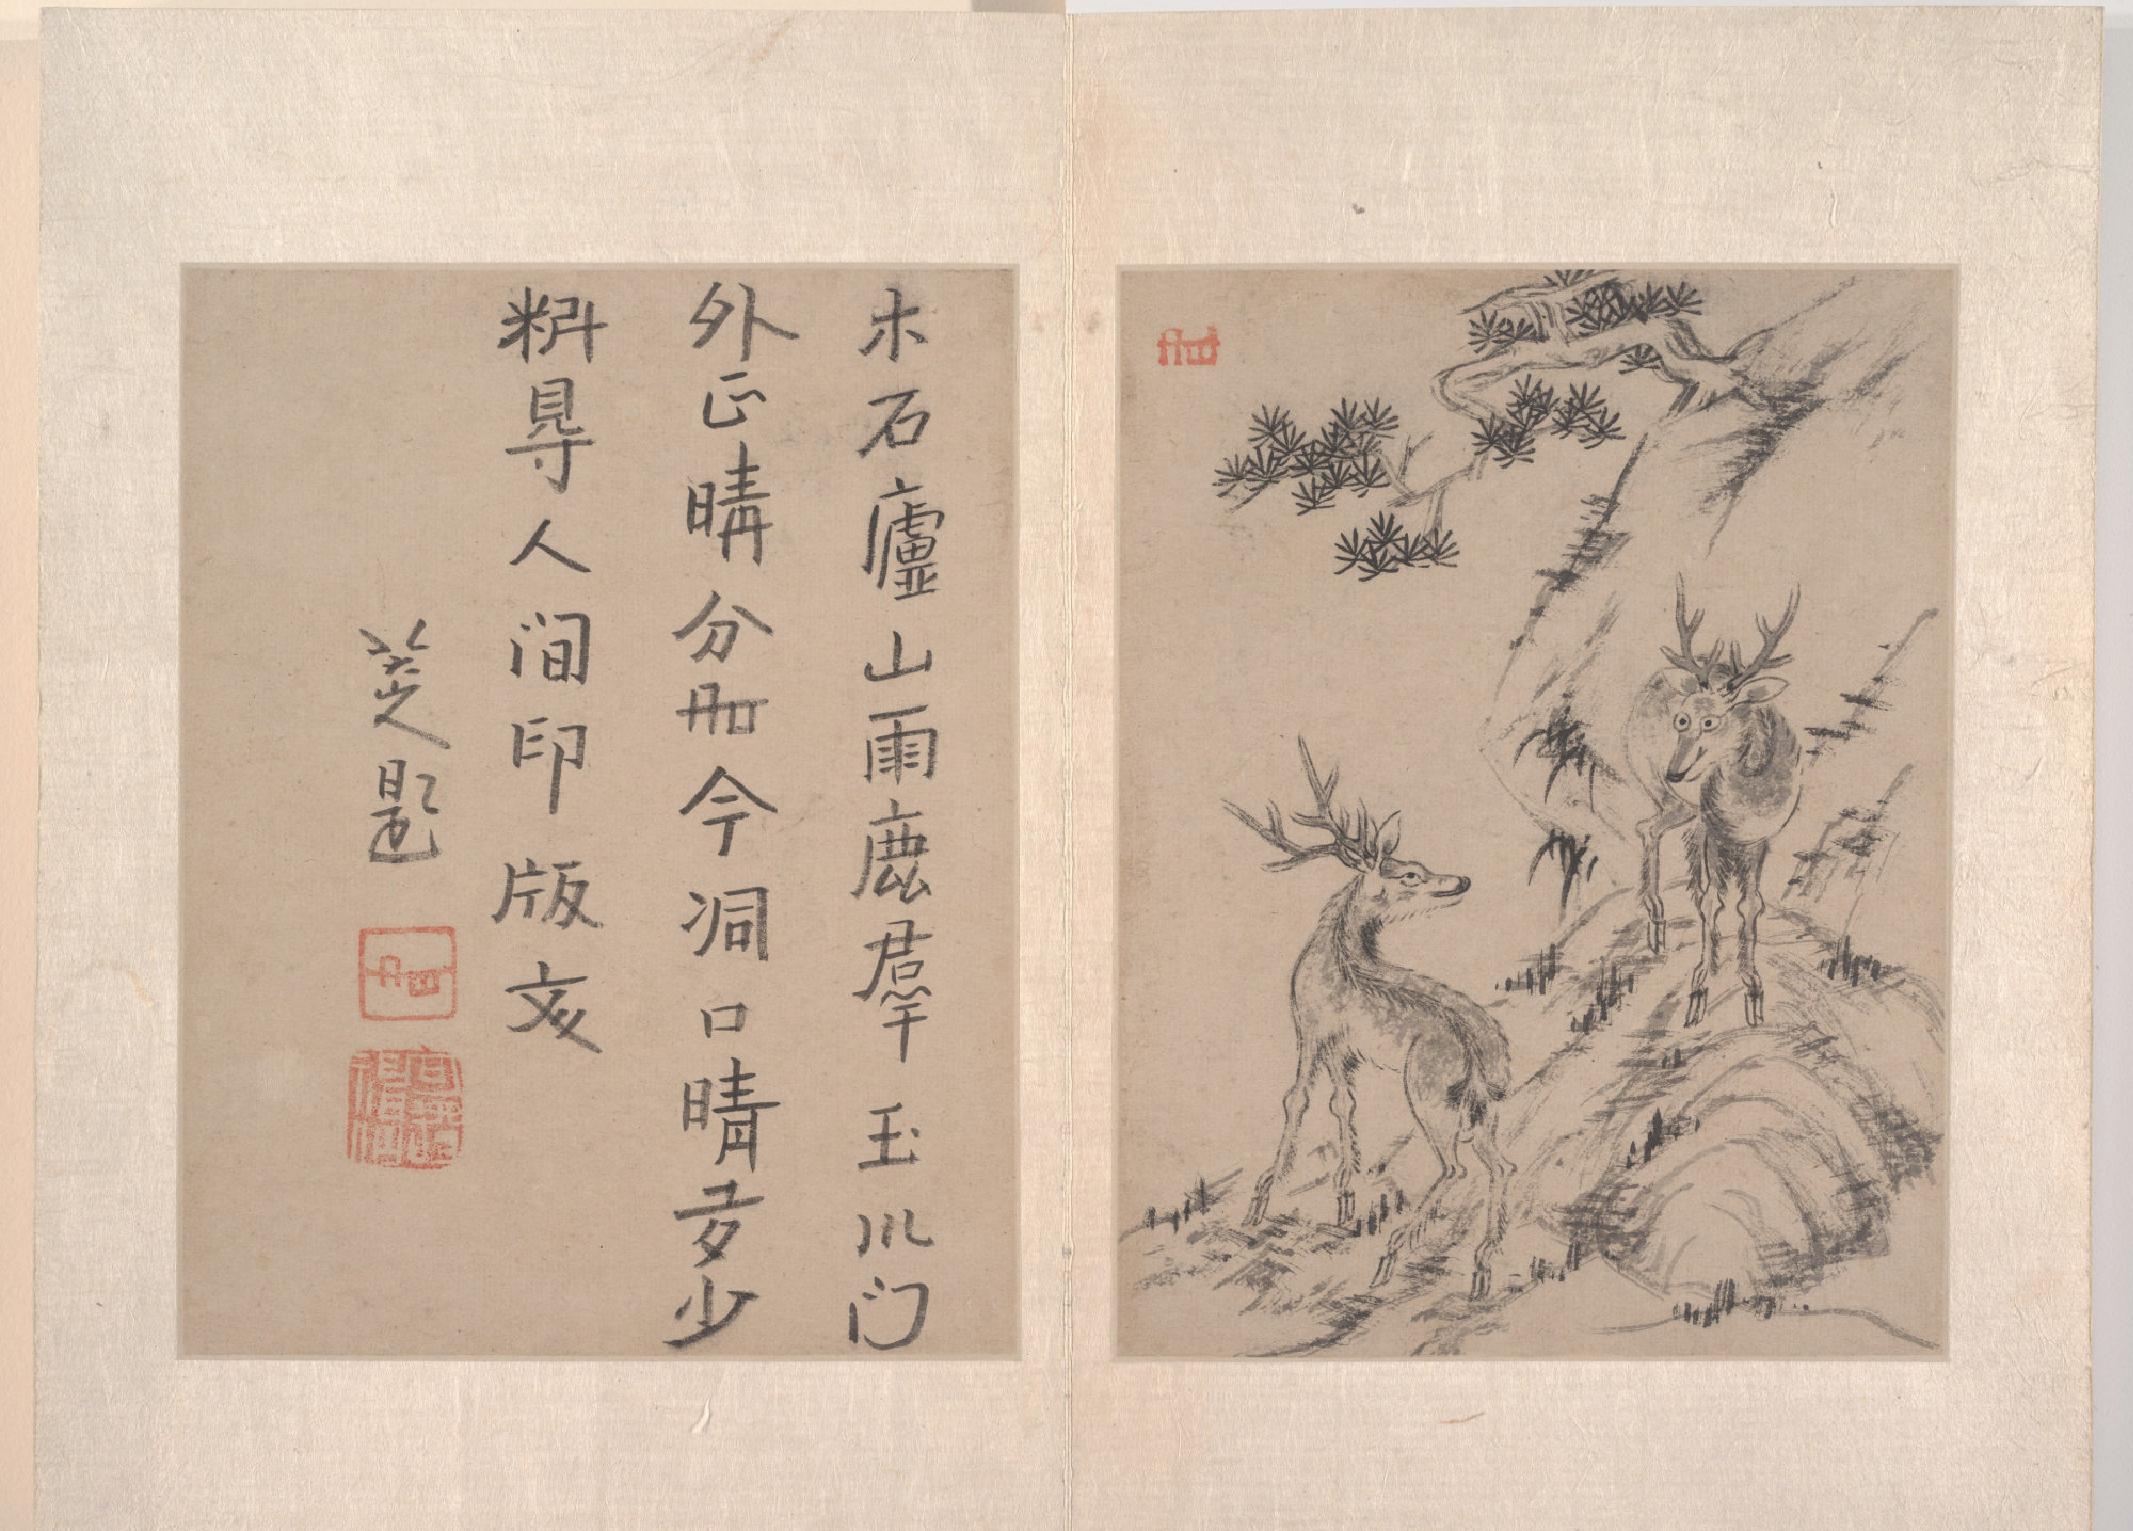 木石廬山雨鹿羣玉川门
外正晴分冊今洞口晴多少
料㝵人间印版文
八大山人題